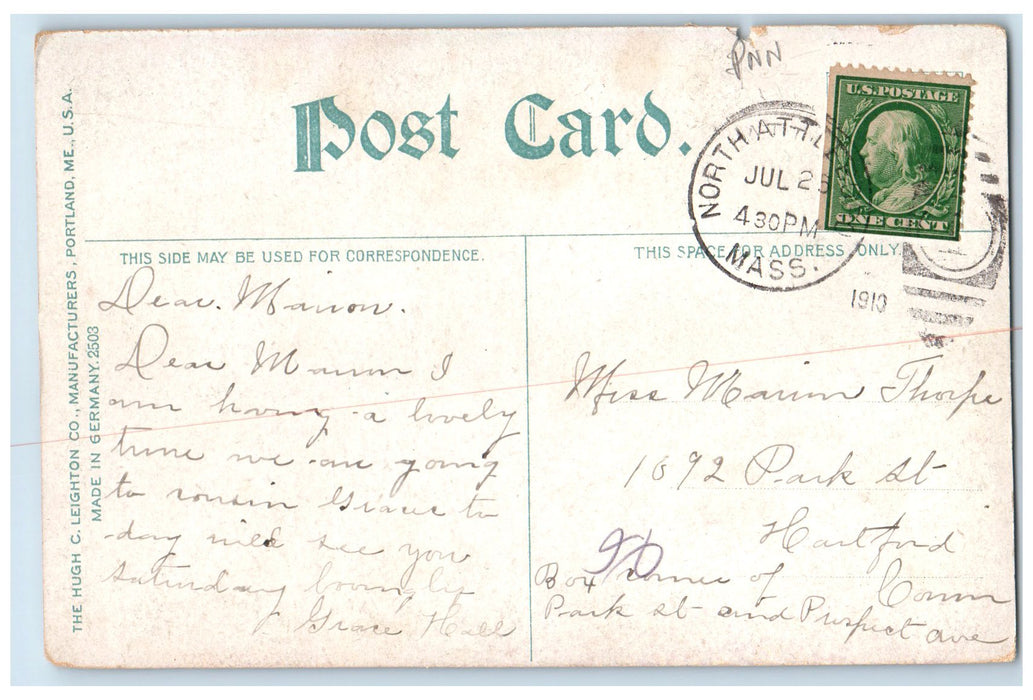 PNN
Post Card.
U.S. POSTAGE
ONE CENT
NORTH ATTL
JUL 25
430 PM
MASS.
1910
THIS SIDE MAY BE USED FOR CORRESPONDENCE.
THIS SPACE FOR ADDRESS ONLY.
THE HUGH C. LEIGHTON CO., MANUFACTURERS, PORTLAND, ME., U.S.A.
MADE IN GERMANY. 2503
Dear. Marion.
Dear Marion I
am having a lovely
time we are going
to cousin Graces to
day will see you
saturday lovingly
Grace Hall
Miss Marion Thorpe
1692 Park st
Hartford
Conn
Box corner of
Park st and Prospect ave